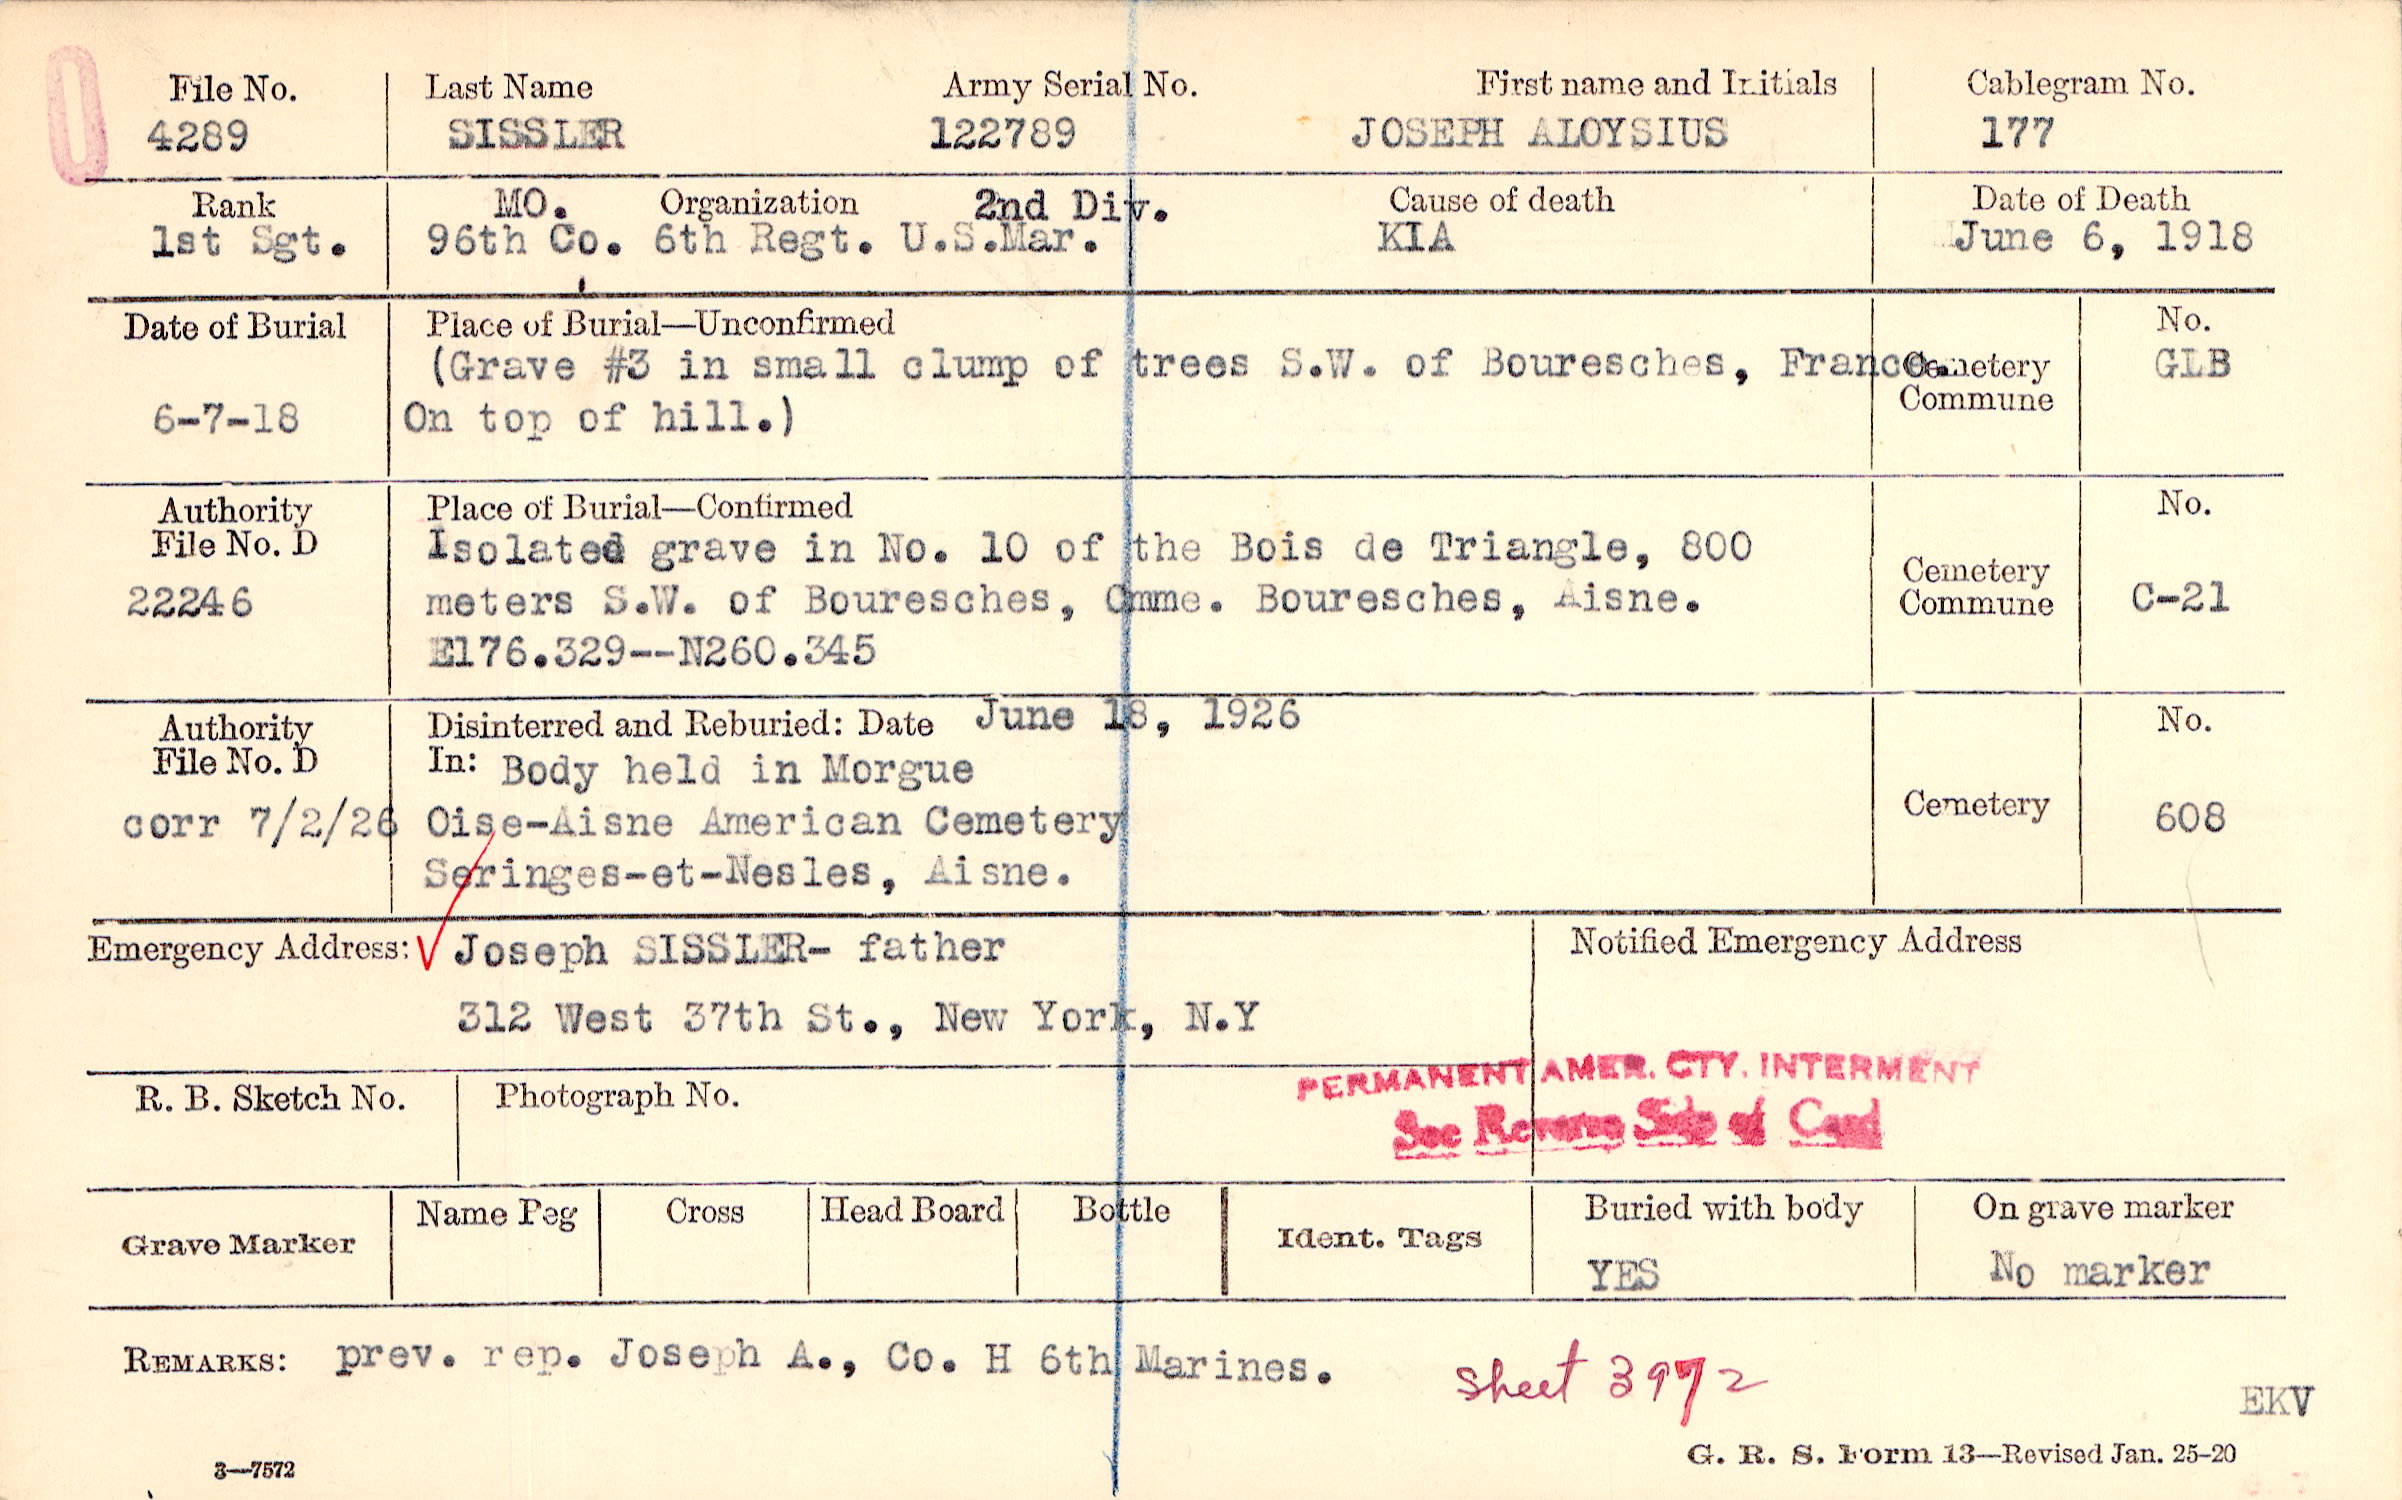 File No. Last Name Army Serial No. First name and Initials Cablegram No.
4289 SISSLER 122789 JOSEPH ALOYSIUS 177
Rank MO. Organization 2nd Div. Cause of death Date of Death
1st Sgt. 96th Co. 6th Regt. U.S.Mar. KIA June 6, 1918
Date of Burial Place of Burial—Unconfirmed No.
(Grave #3 in small clump of trees S.W. of Bouresches, France. Cemetery GLB
6-7-18 On top of hill.) Commune
Authority Place of Burial—Confirmed No.
File No. D Isolated grave in No. 10 of the Bois de Triangle, 800 Cemetery
22246 meters S.W. of Bouresches, Cmme. Bouresches, Aisne. Commune C-21
E176.329--N260.345
Authority Disinterred and Reburied: Date June 18, 1926 No.
File No. D In: Body held in Morgue
corr 7/2/26 Oise-Aisne American Cemetery Cemetery 608
Seringes-et-Nesles, Aisne.
Emergency Address: Joseph SISSLER- father Notified Emergency Address
312 West 37th St., New York, N.Y
R. B. Sketch No. Photograph No. PERMANENT AMER. CTY. INTERMENT
See Reverse Side of Card
Grave Marker Name Peg Cross Head Board Bottle Ident. Tags Buried with body On grave marker
YES No marker
REMARKS: prev. rep. Joseph A., Co. H 6th Marines.
Sheet 3972
EKV
3—7572 G. R. S. Form 13—Revised Jan. 25-20